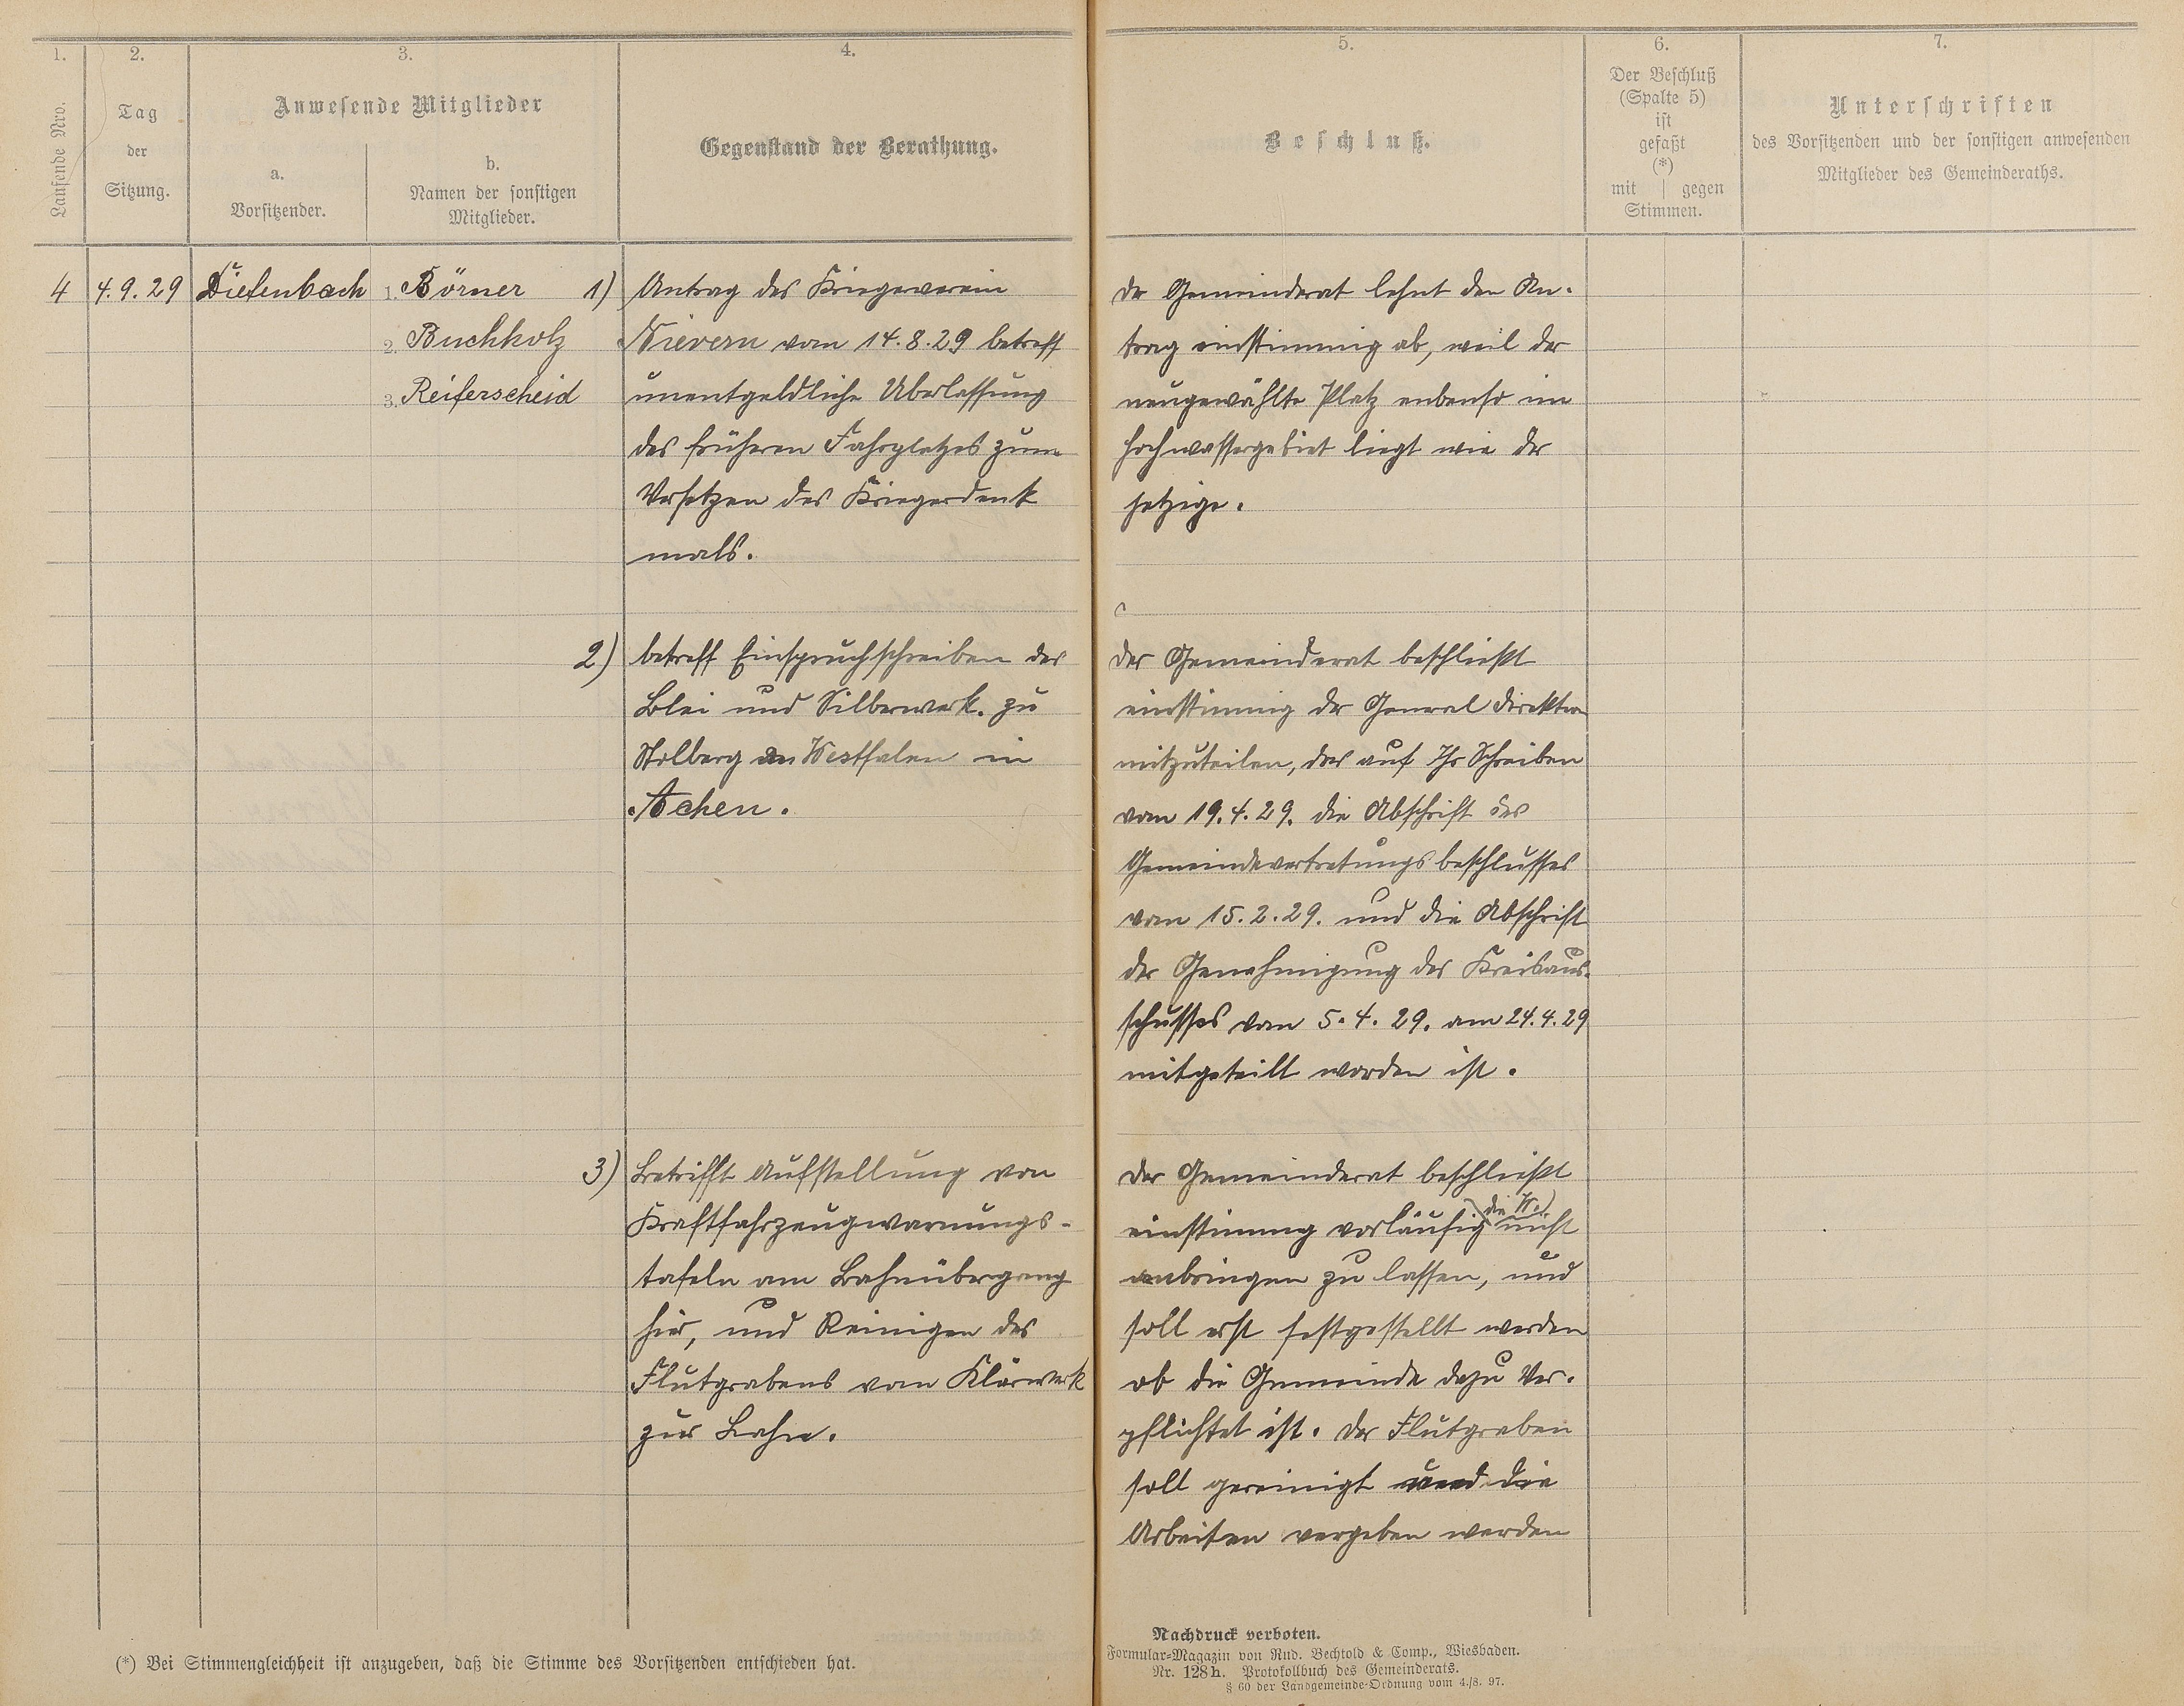 1.
2.
3.
4.
Laufende Nro.
Tag
der
Sitzung.
Anwesende Mitglieder
a.
Vorsitzender.
b.
Namen der sonstigen
Mitglieder.
Gegenstand der Berathung.
4
4.9.29
Diefenbach
1. Börner
2. Buchholz
3. Reiferscheid
1) Antrag des Kriegerverein
Nievern vom 14.8.29 betreff
unentgeldliche Uberlassung
des früheren Fahrplatzes zum
Versetzen des Kriegerdenk
mals.
2) betreff Einspruchschreiben der
Blei und Silberwerk. zu
Stolberg an Westfalen in
Achen.
3) Betrifft Aufstellung von
Kraftfahrzeugwarnungs-
tafeln am Bahnübergang
hier, und Reinigen des
Flutgrabens vom Klärwerk
zur Lahn.
(*) Bei Stimmengleichheit ist anzugeben, daß die Stimme des Vorsitzenden entschieden hat.
5.
6.
7.
Beschluß.
Der Beschluß
(Spalte 5)
ist
gefaßt
(*)
mit | gegen
Stimmen.
Unterschriften
des Vorsitzenden und der sonstigen anwesenden
Mitglieder des Gemeinderaths.
der Gemeinderat lehnt den An-
trag einstimmig ab, weil der
neugewählte Platz enbenso im
Hochwassergebiet liegt wie der
jetzige.
der Gemeinderat beschließt
einstimmig der General direktion
mitzuteilen, das auf Ihr Schreiben
vom 19.4.29. die Abschrift des
Gemeindevertretungsbeschlusses
vom 15.2.29. und die Abschrift
der Genehmigung des Kreisaus-
schusses vom 5.4.29. am 24.4.29
mitgeteilt worden ist.
der Gemeinderat beschließt
die W.
einstimmg vorläufig nicht
anbringen zu lassen, und
soll erst festgestellt werden
ob die Gemeinde dazu Ver-
pflichtet ist. der Flutgraben
soll gereinigt und die
Arbeiten vergeben werden
Nachdruck verboten.
Formular-Magazin von Rud. Bechtold & Comp., Wiesbaden.
Nr. 128 h. Protokollbuch des Gemeinderats.
§ 60 der Landgemeinde-Ordnung vom 4./8. 97.